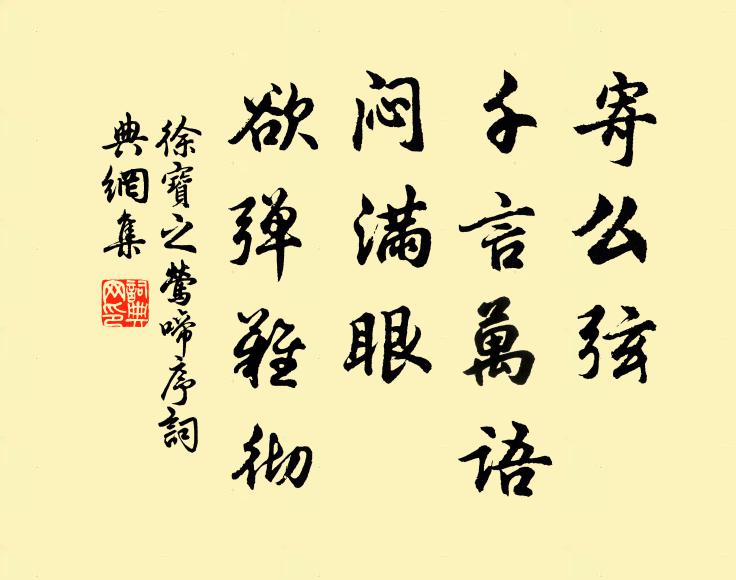 寄么弦
千言萬語
闷满眼
欲弹難彻
徐寶之鶯啼序詞
典網集
詞典
网印